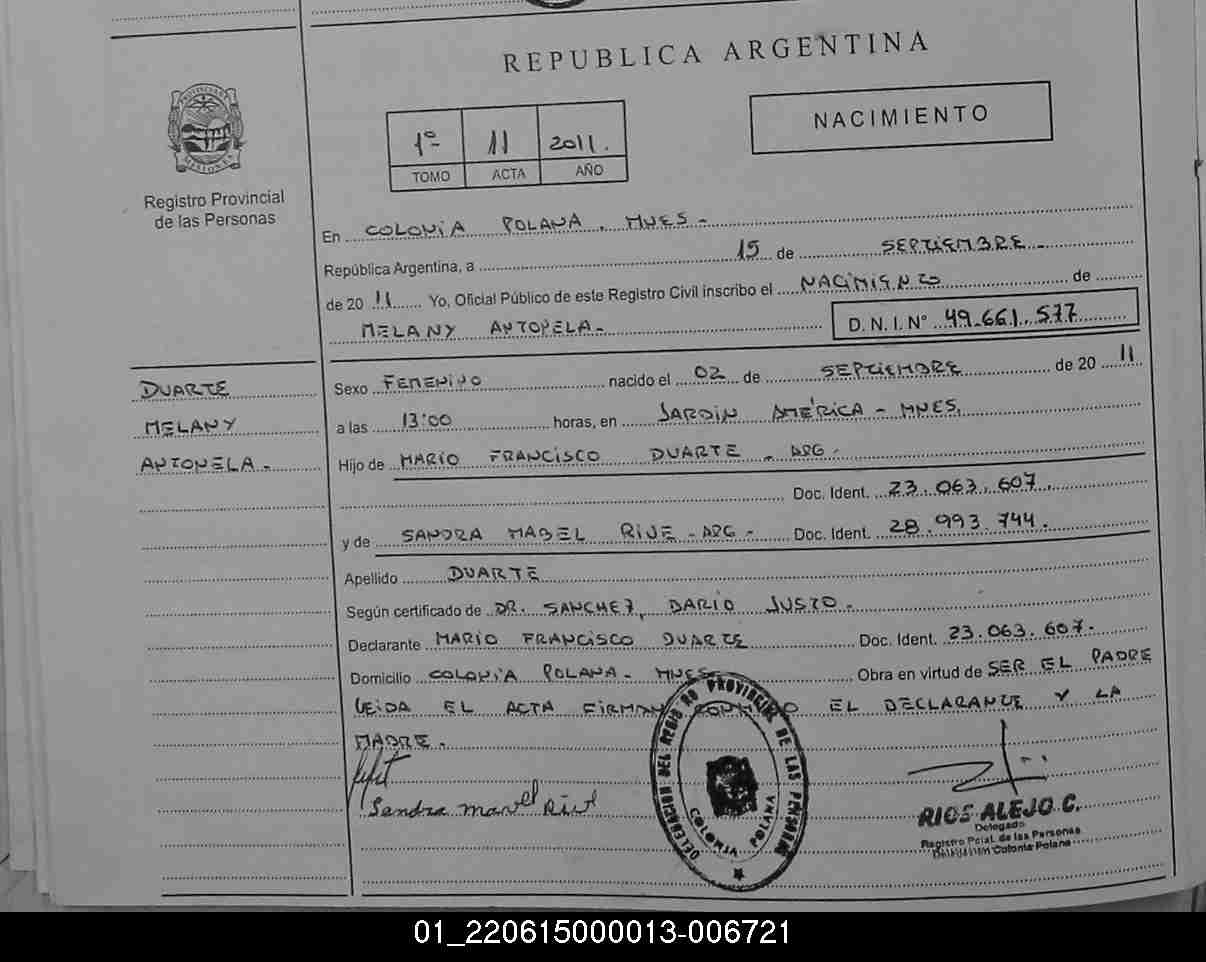 REPUBLICA ARGENTINA
PROVINCIA DE
MISIONES
Registro Provincial
de las Personas
1º 11 2011.
TOMO ACTA AÑO
NACIMIENTO
En COLONIA POLANA, MNES -
República Argentina, a 15 de SEPTIEMBRE -
de 20 11 Yo, Oficial Público de este Registro Civil inscribo el NACIMIENTO de
MELANY ANTONELA - D. N. I. N° 49.661.577
DUARTE
MELANY
ANTONELA -
Sexo FEMENINO nacido el 02 de SEPTIEMBRE de 20 11
a las 13:00 horas, en JARDIN AMÉRICA - MNES.
Hijo de MARIO FRANCISCO DUARTE - ARG -
Doc. Ident. 23.063.607.
y de SANDRA MABEL RIVE - ARG - Doc. Ident. 28.993.744.
Apellido DUARTE
Según certificado de DR. SANCHEZ, DARIO JUSTO -
Declarante MARIO FRANCISCO DUARTE Doc. Ident. 23.063.607.
Domicilio COLONIA POLANA - MNES Obra en virtud de SER EL PADRE
LEIDA EL ACTA FIRMAN CONMIGO EL DECLARANTE Y LA
MADRE.
Sandra mavel Rive
DELEGACION DEL REGISTRO PROVINCIAL DE LAS PERSONAS
COLONIA POLANA
RIOS ALEJO C.
Delegado
Registro Pcial. de las Personas
Colonia Polana
01_220615000013-006721